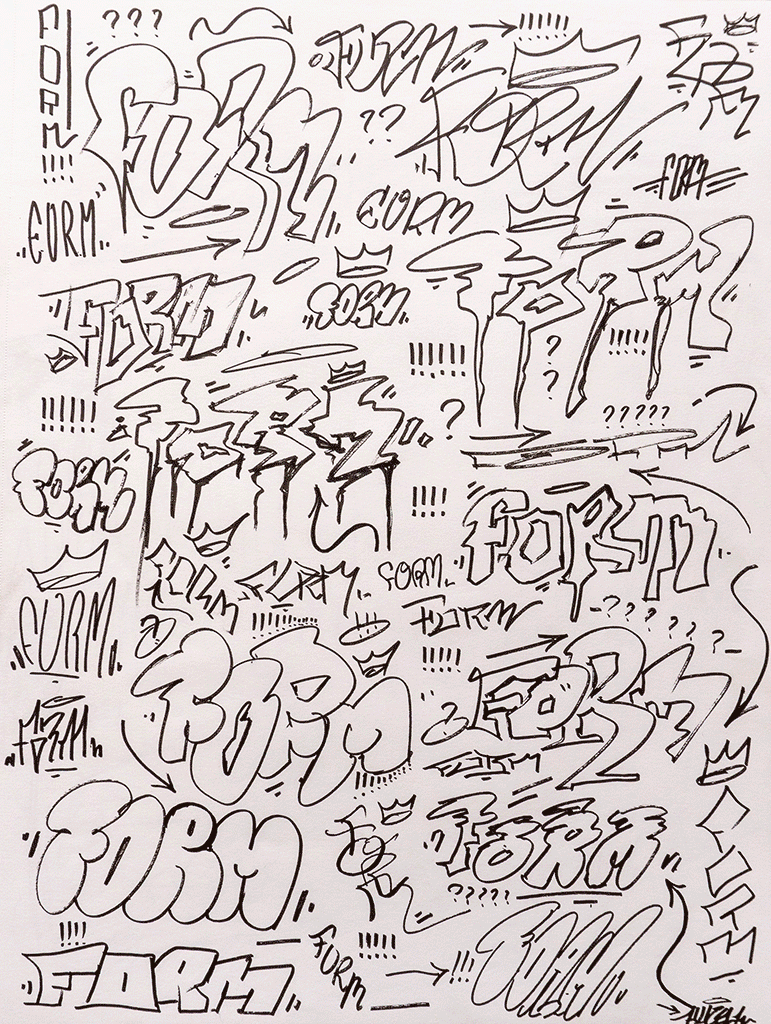 FORM
???
FORM
FORM
!!!!!!
FORM
FORM
??
FORM
!!!!
FORM
FORM
FORM
FORM
FORM
FORM
!!!!!!
!!!!!
?
?
!!!!!!
FORM
?
?????
FORM
!!!!
FORM
FORM
FORM
FORM
FORM
FORM
??????
!!!!!
FORM
FORM
FORM
FORM
FORM
FORM
FORM
?????
FORM
!!!!
FORM
FORM
!!!!!
!!!
FORM